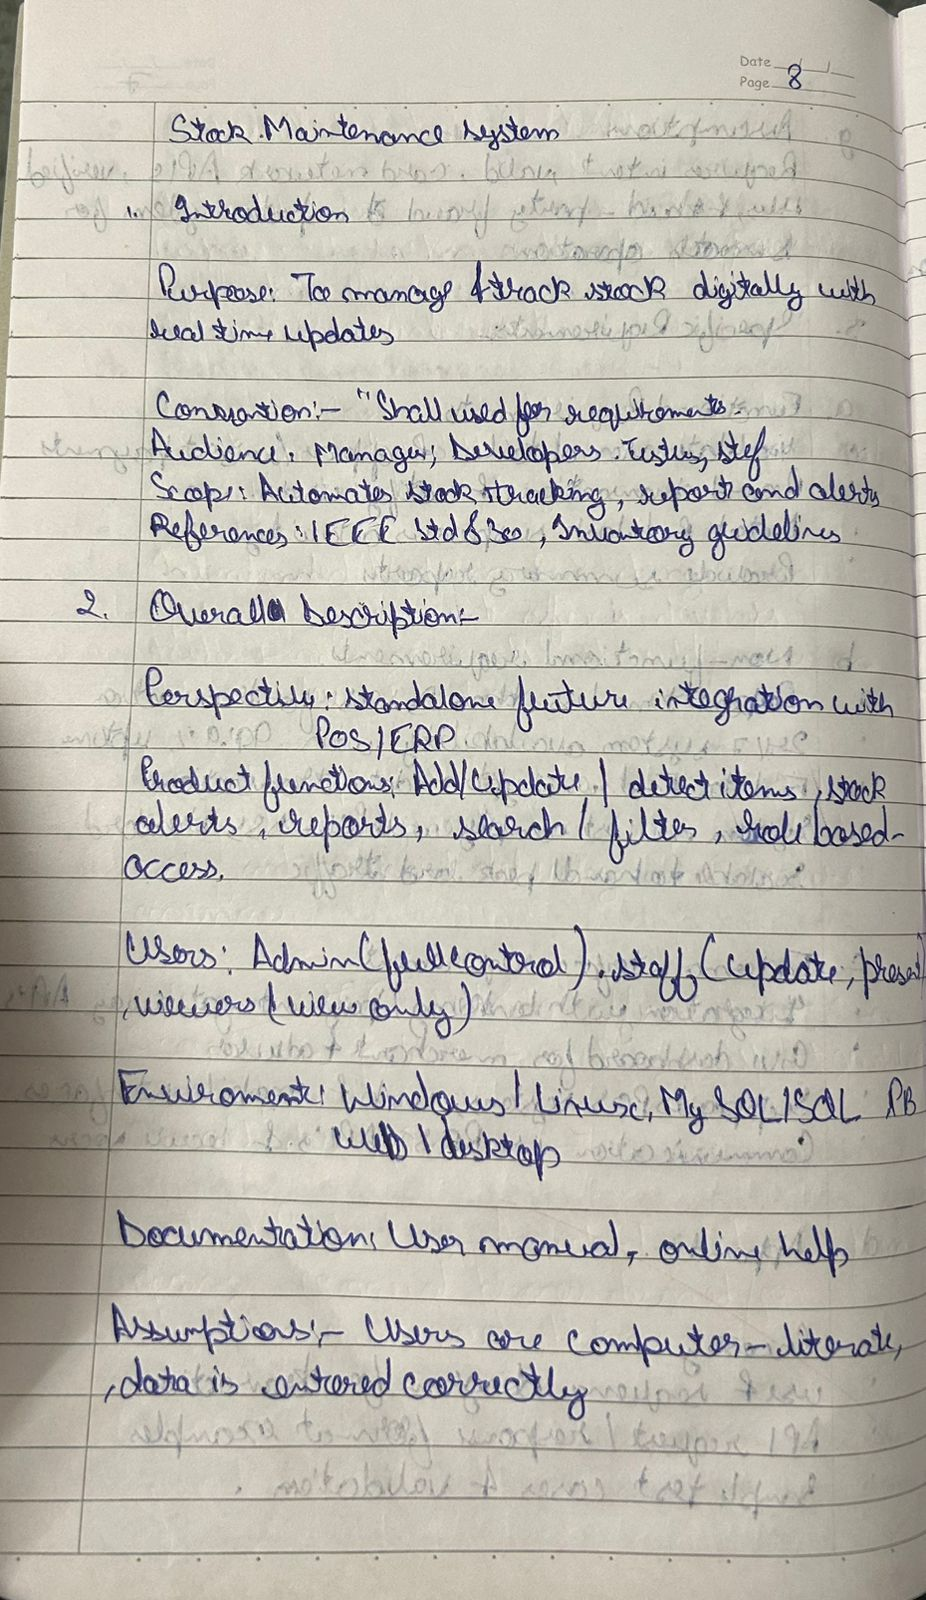 Date
Page 8
Stock Maintenance system
1. Introduction
Purpose: To manage & track stock digitally with
real time updates
Convention:- "Shall used for requirements.
Audience: Manager, Developers, Testers, staf
Scope: Automates stock tracking, report and alerts
References: IEEE Std 830, Inventory guidelines
2. Overall Description:-
Perspective: standalone future integration with
POS/ERP
Product functions: Add/Update / detect items, stock
alerts, reports, search / filter, role based-
access.
Users: Admin (full control), staff (update,
, viewers (view only)
Enviroment: Windows / Linux, My SQL/SQL DB
Web / desktop
Documentation: User manual, online help
Assumptions:- Users are computer-literate,
, data is entered correctly